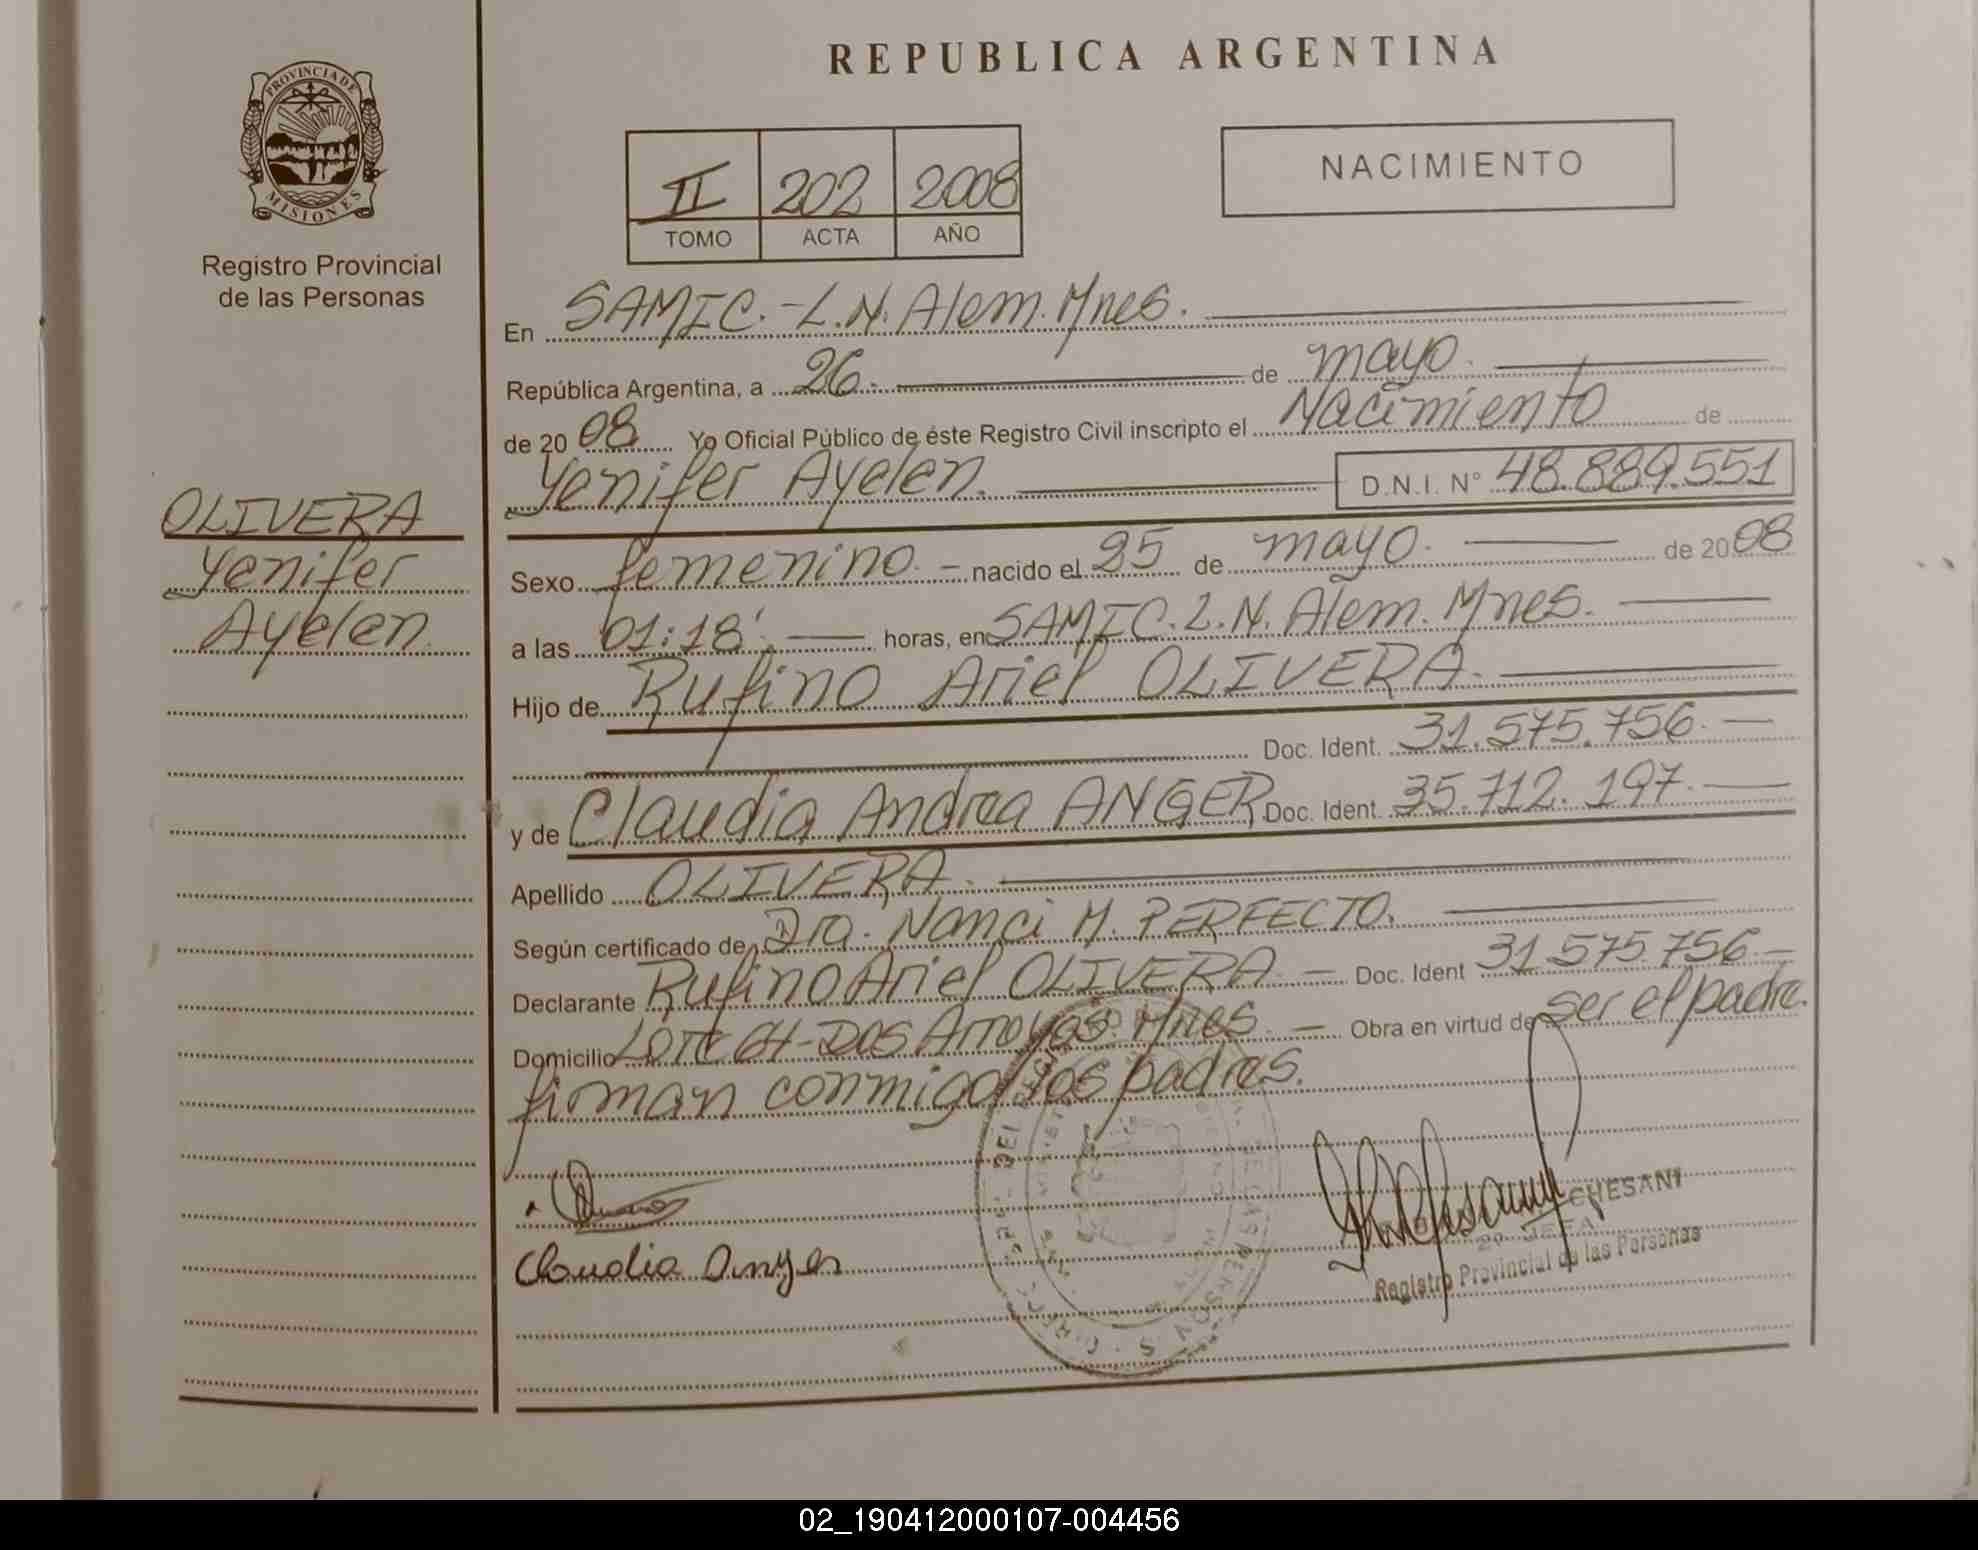 REPUBLICA ARGENTINA
PROVINCIA DE MISIONES
Registro Provincial
de las Personas
II 202 2008
TOMO ACTA AÑO
NACIMIENTO
En SAMIC.-L.N. Alem. Mnes.
República Argentina, a 26. de mayo.
de 20 08 Yo Oficial Público de éste Registro Civil inscripto el Nacimiento de
Yenifer Ayelen. D.N.I. N° 48.889.551
OLIVERA
Yenifer
Ayelen.
Sexo femenino. - nacido el 25 de mayo. de 2008
a las 01:18'. horas, en SAMIC. L.N. Alem. Mnes.
Hijo de Rufino Ariel OLIVERA.
Doc. Ident. 31.575.756.
y de Claudia Andrea ANGER Doc. Ident. 35.712.197.
Apellido OLIVERA.
Según certificado de Dra. Nanci M. PERFECTO.
Declarante Rufino Ariel OLIVERA. - Doc. Ident 31.575.756-
Domicilio LOTE 64-DOS Arroyos. Mnes. - Obra en virtud de ser el padre.
firman conmigo los padres.
Claudia Anger
CHESANI
JEFA
Registro Provincial de las Personas
02_190412000107-004456